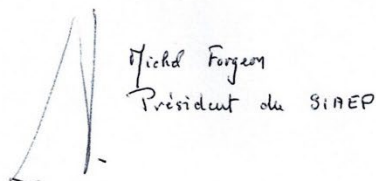 Michel Forgeon
Président du SIAEP